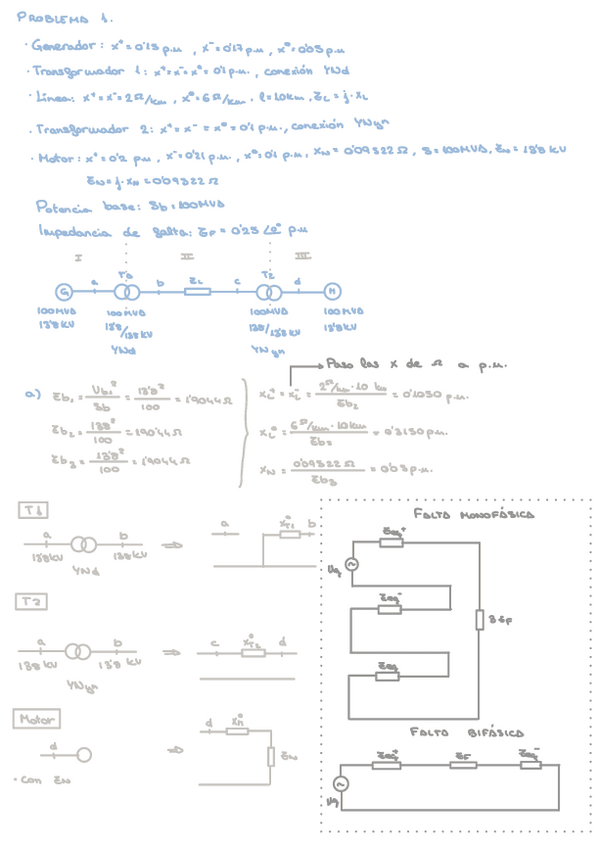 PROBLEMA 1.
· Generador: x⁺=0'15 p.u , x⁻=0'17 p.u , x⁰=0'05 p.u
· Transformador 1: x⁺=x⁻=x⁰=0'1 p.u. , conexión YNd
· Línea: x⁺=x⁻=2Ω/km , x⁰=6Ω/km . l=10km , z̄L=j·xL
· Transformador 2: x⁺=x⁻=x⁰=0'1 p.u., conexión YNyn
· Motor: x⁺=0'2 p.u , x⁻=0'21 p.u. , x⁰=0'1 p.u. xN=0'09522Ω , S=100MVA, z̄N=13'8 kV
z̄N=j·xN=0'09522Ω
Potencia base: Sb=100MVA
Impedancia de falta: z̄F=0'25 ∠0° p.u
I II III
a T1 b z̄L c T2 d
G M
100MVA 100MVA 100MVA 100MVA
13'8kV 13'8/138kV 138/13'8kV 13'8kV
YNd YNyn
Paso las x de Ω a p.u.
a) z̄b1 = Ub1²/Sb = 13'8²/100 = 1'9044Ω
z̄b2 = 138²/100 = 190'44Ω
z̄b3 = 13'8²/100 = 1'9044Ω
xL⁺=xL⁻= 2Ω/km·10 km/z̄b2 = 0'1050 p.u.
xL⁰= 6Ω/km·10km/z̄b2 = 0'3150 p.u.
xN= 0'09522Ω/z̄b3 = 0'05 p.u.
T1
a b
138kV 138kV
YNd
⇒
a xT1⁰ b
T2
a b
138kV 13'8 kV
YNyn
⇒
c xT2⁰ d
Motor
d
· Con z̄N
⇒
d xM⁰
z̄N
FALTA MONOFÁSICA
z̄eq⁺
z̄eq⁻
3z̄F
z̄eq
FALTA BIFÁSICA
z̄eq⁺ z̄F z̄eq⁻